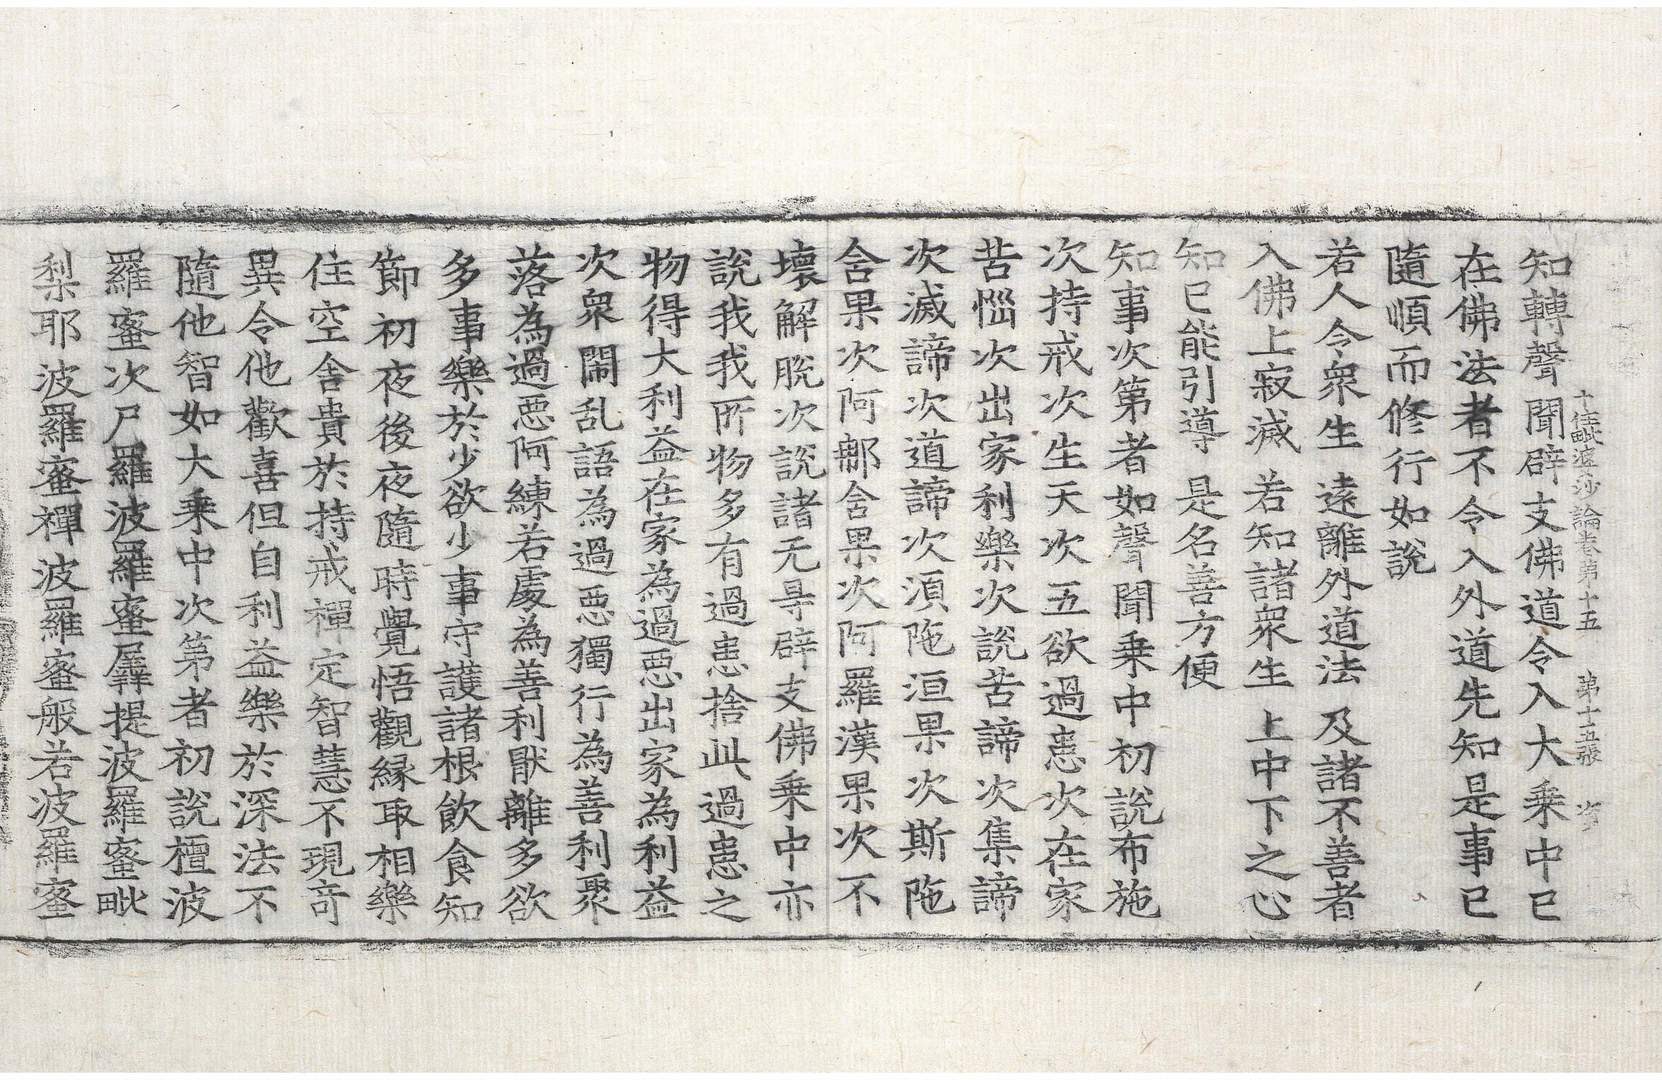 十住毗婆沙論卷第十五　第十五張　資
知轉聲聞辟支佛道令入大乗中已
在佛法者不令入外道先知是事已
隨順而修行如説
若人令衆生　遠離外道法　及諸不善者
入佛上寂滅　若知諸衆生　上中下之心
知已能引導　是名善方便
知事次第者如聲聞乗中初説布施
次持戒次生天次五欲過患次在家
苦惱次出家利樂次説苦諦次集諦
次滅諦次道諦次湏陁洹果次斯陁
含果次阿那含果次阿羅漢果次不
壞解脫次説諸无㝵辟支佛乗中亦
説我我所物多有過患捨此過患之
物得大利益在家為過惡出家為利益
次衆閙乱語為過惡獨行為善利聚
落為過惡阿練若處為善利猒離多欲
多事樂於少欲少事守護諸根飲食知
節初夜後夜隨時覺悟觀縁取相樂
住空舍貴於持戒禪定智慧不現奇
異令他歡喜但自利益樂於深法不
隨他智如大乗中次第者初説檀波
羅蜜次尸羅波羅蜜羼提波羅蜜毗
梨耶波羅蜜禪波羅蜜般若波羅蜜